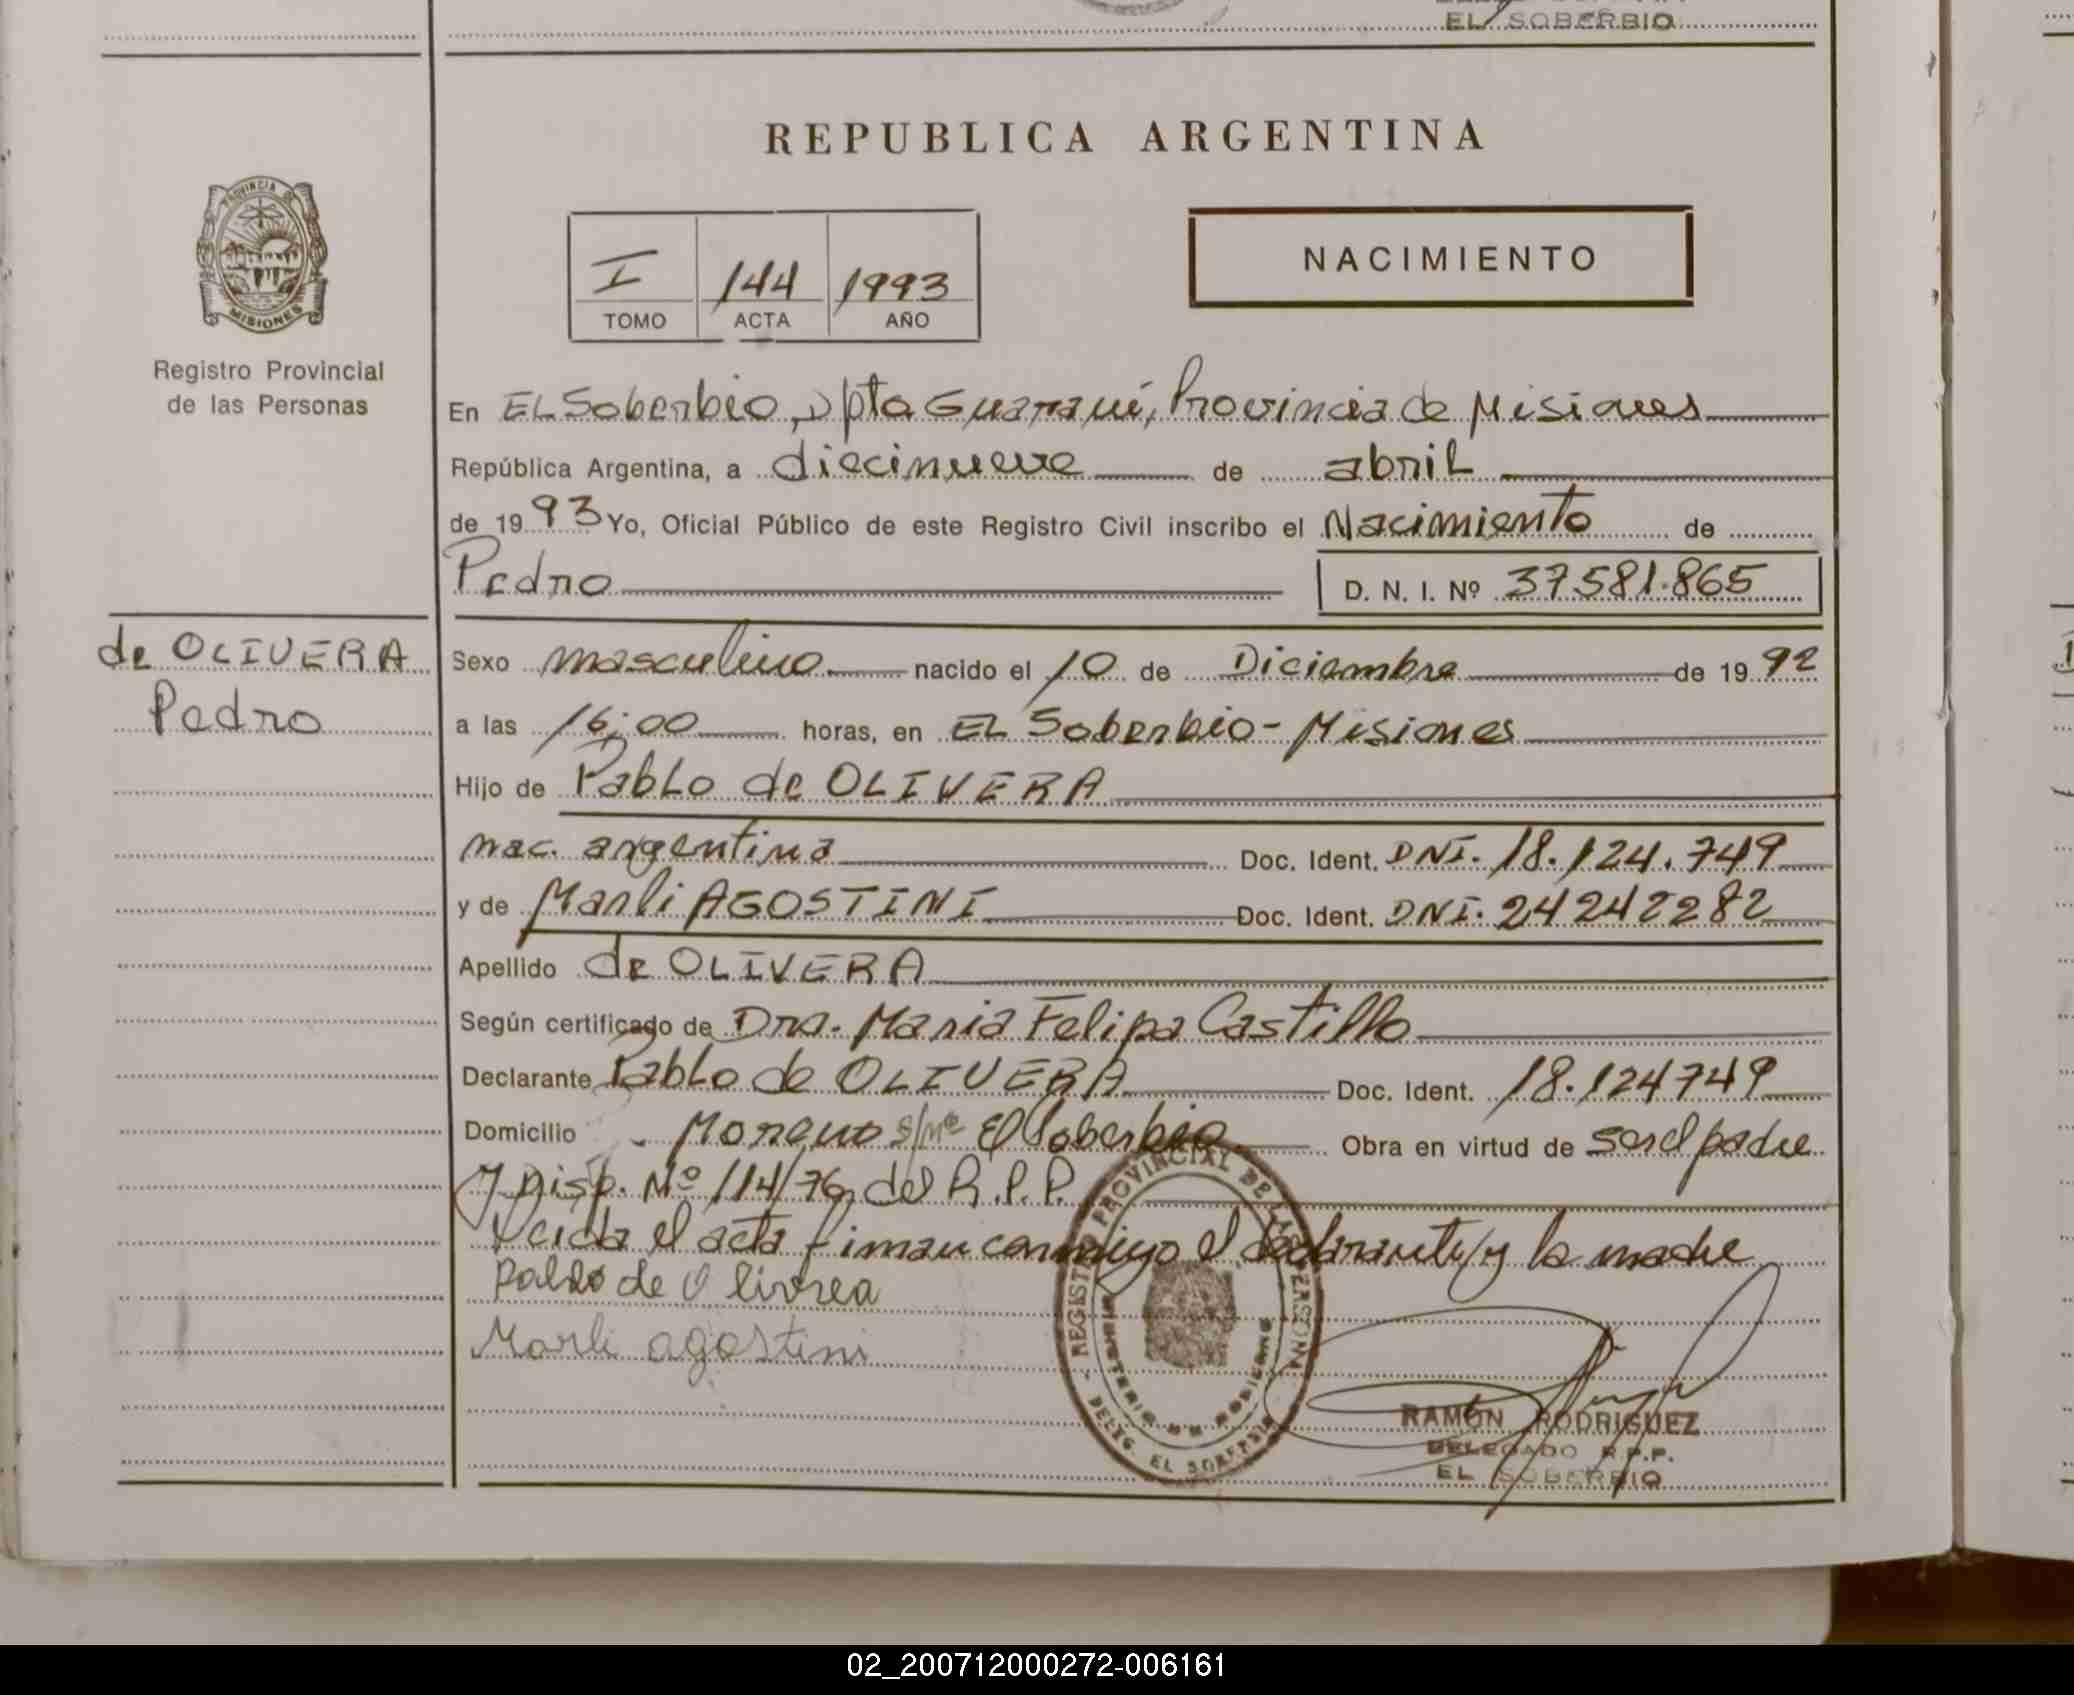 EL SOBERBIO
REPUBLICA ARGENTINA
PROVINCIA DE
MISIONES
Registro Provincial
de las Personas
I 144 1993
TOMO ACTA AÑO
NACIMIENTO
En EL Soberbio, Dpto Guaraní, Provincia de Misiones
República Argentina, a diecinueve de abril
de 1993 Yo, Oficial Público de este Registro Civil inscribo el Nacimiento de
Pedro D. N. I. Nº 37.581.865
de OLIVERA
Pedro
Sexo masculino nacido el 10 de Diciembre de 1992
a las 16:00 horas, en EL Soberbio - Misiones
Hijo de Pablo de OLIVERA
nac. argentina Doc. Ident. DNI. 18.124.749
y de Marli AGOSTINI Doc. Ident. DNI. 24242282
Apellido de OLIVERA
Según certificado de Dra. Maria Felipa Castillo
Declarante Pablo de OLIVERA Doc. Ident. 18.124749
Domicilio Moreno s/nº El Soberbio Obra en virtud de ser el padre
y Disp. Nº 114/76 del R.P.P.
Leida el acta firman conmigo el declarante y la madre
Pablo de Olivrea
Marli agostini
REGISTRO PROVINCIAL DE LAS PERSONAS
MINISTERIO DE GOBIERNO
DELEG. EL SOBERBIO
RAMON RODRIGUEZ
DELEGADO R.P.P.
EL SOBERBIO
02_200712000272-006161